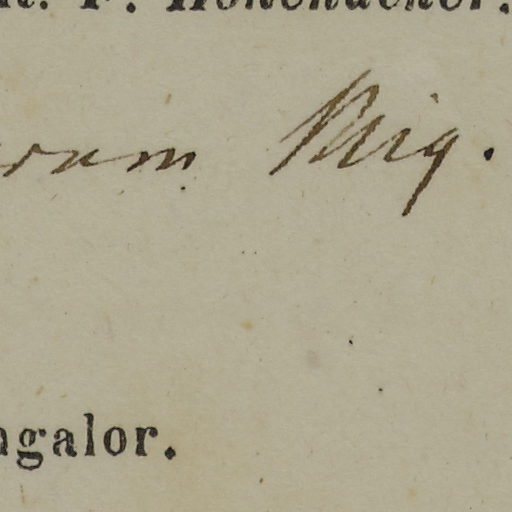 R. F. Hohenacker.
rum Miq.
ngalor.